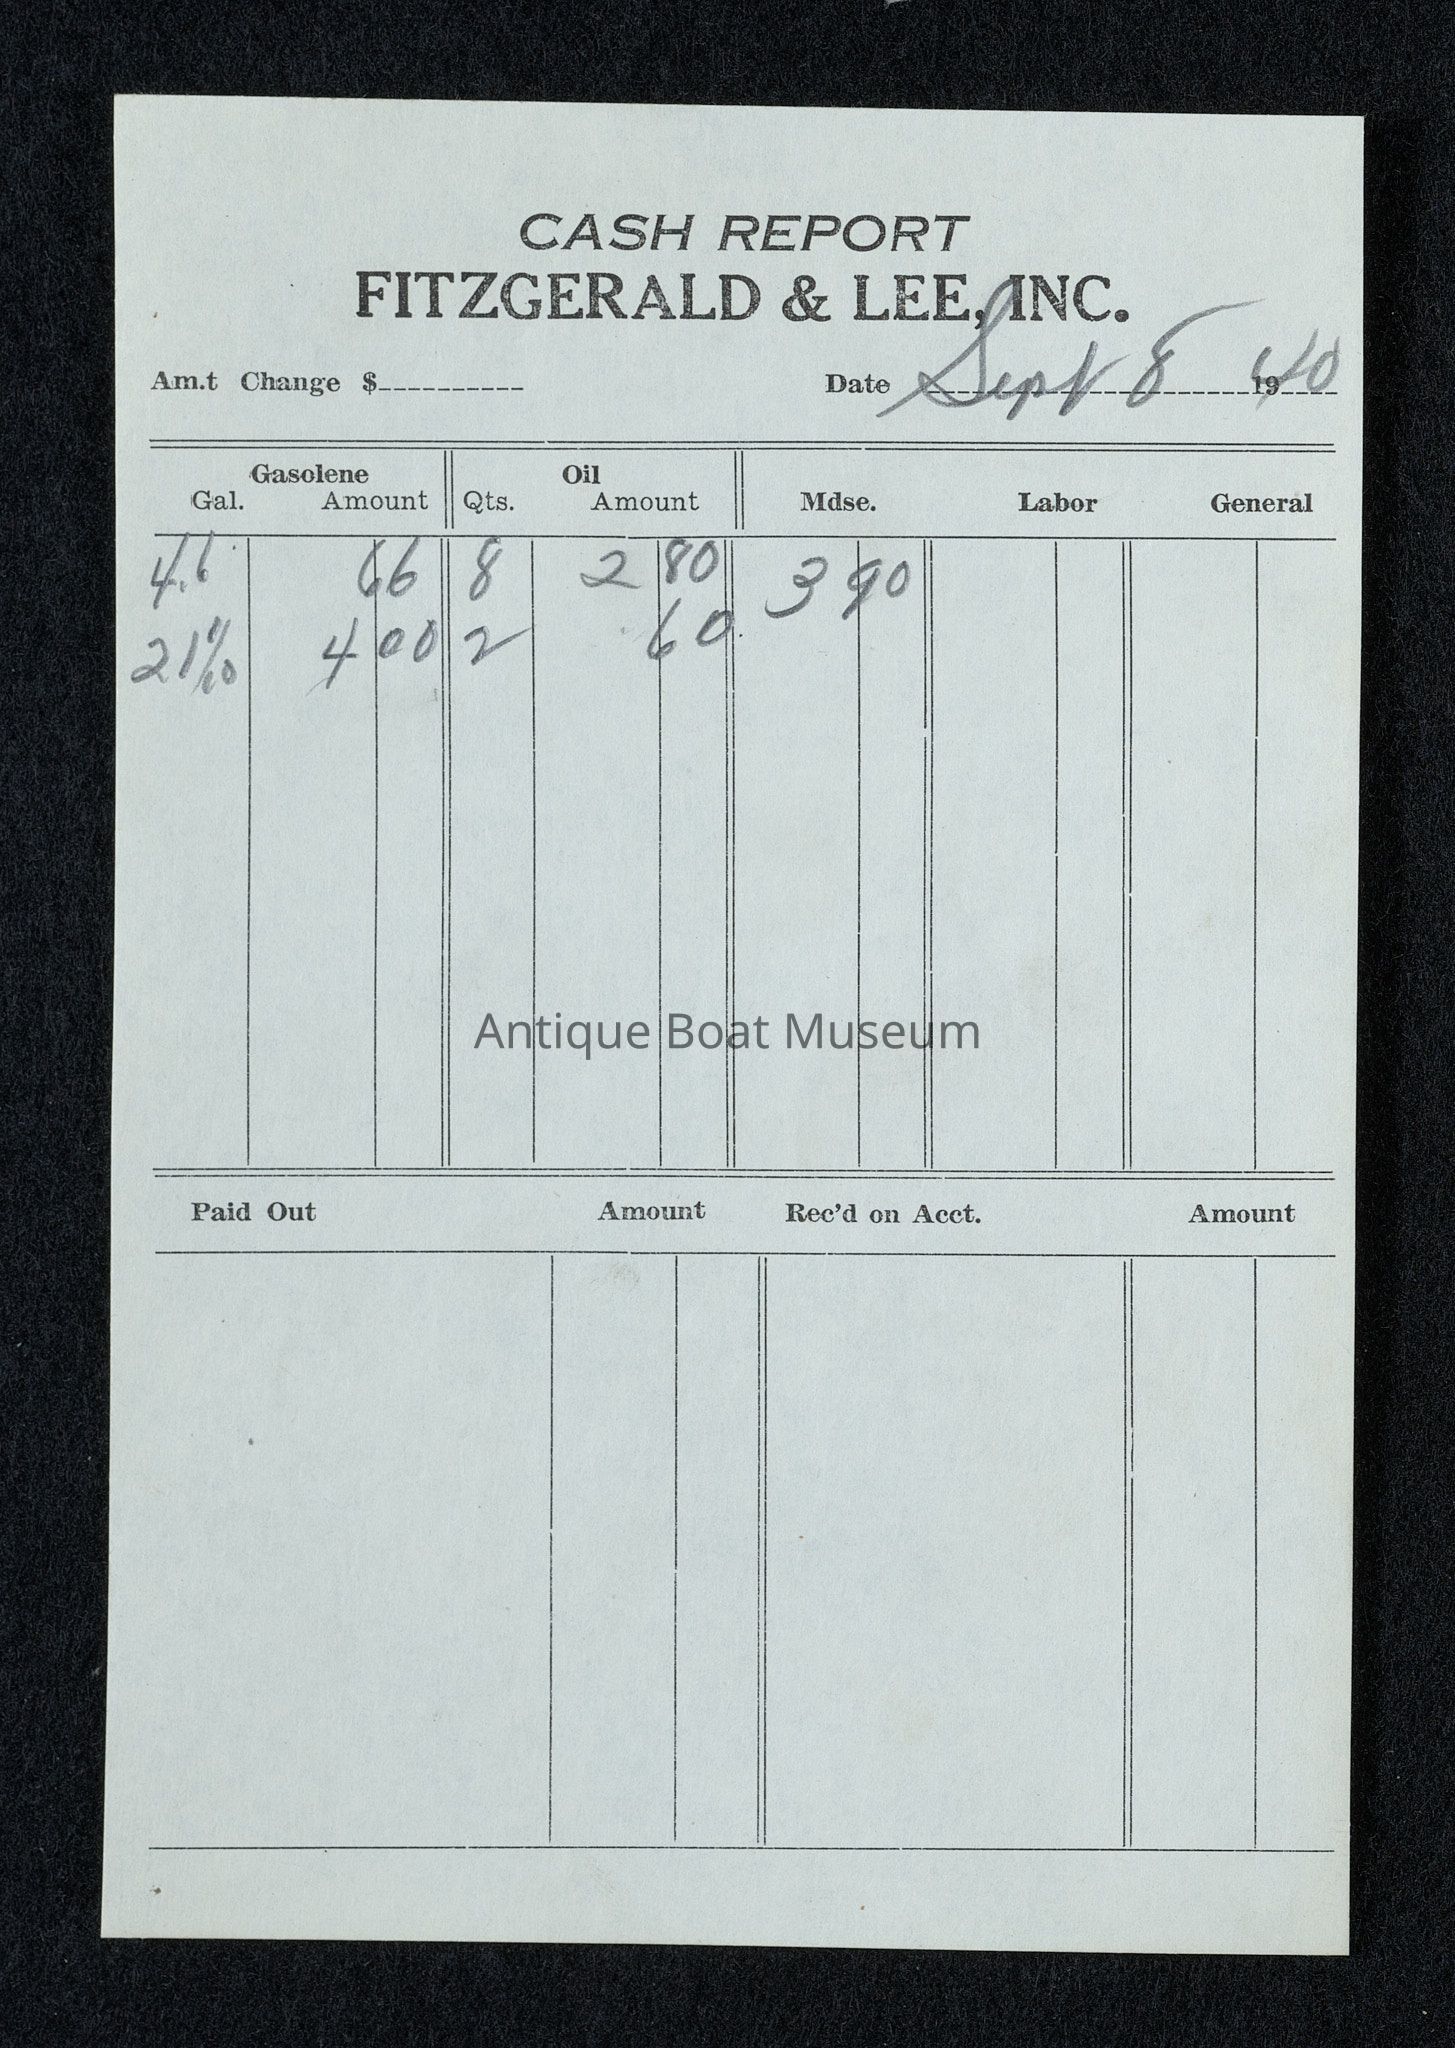 CASH REPORT
FITZGERALD & LEE, INC.
Am.t Change $ Date Sept 8 1940
Gasolene Oil
Gal. Amount Qts. Amount Mdse. Labor General
66 8 2 80 3 90
4 00 2 60
Antique Boat Museum
Paid Out Amount Rec'd on Acct. Amount